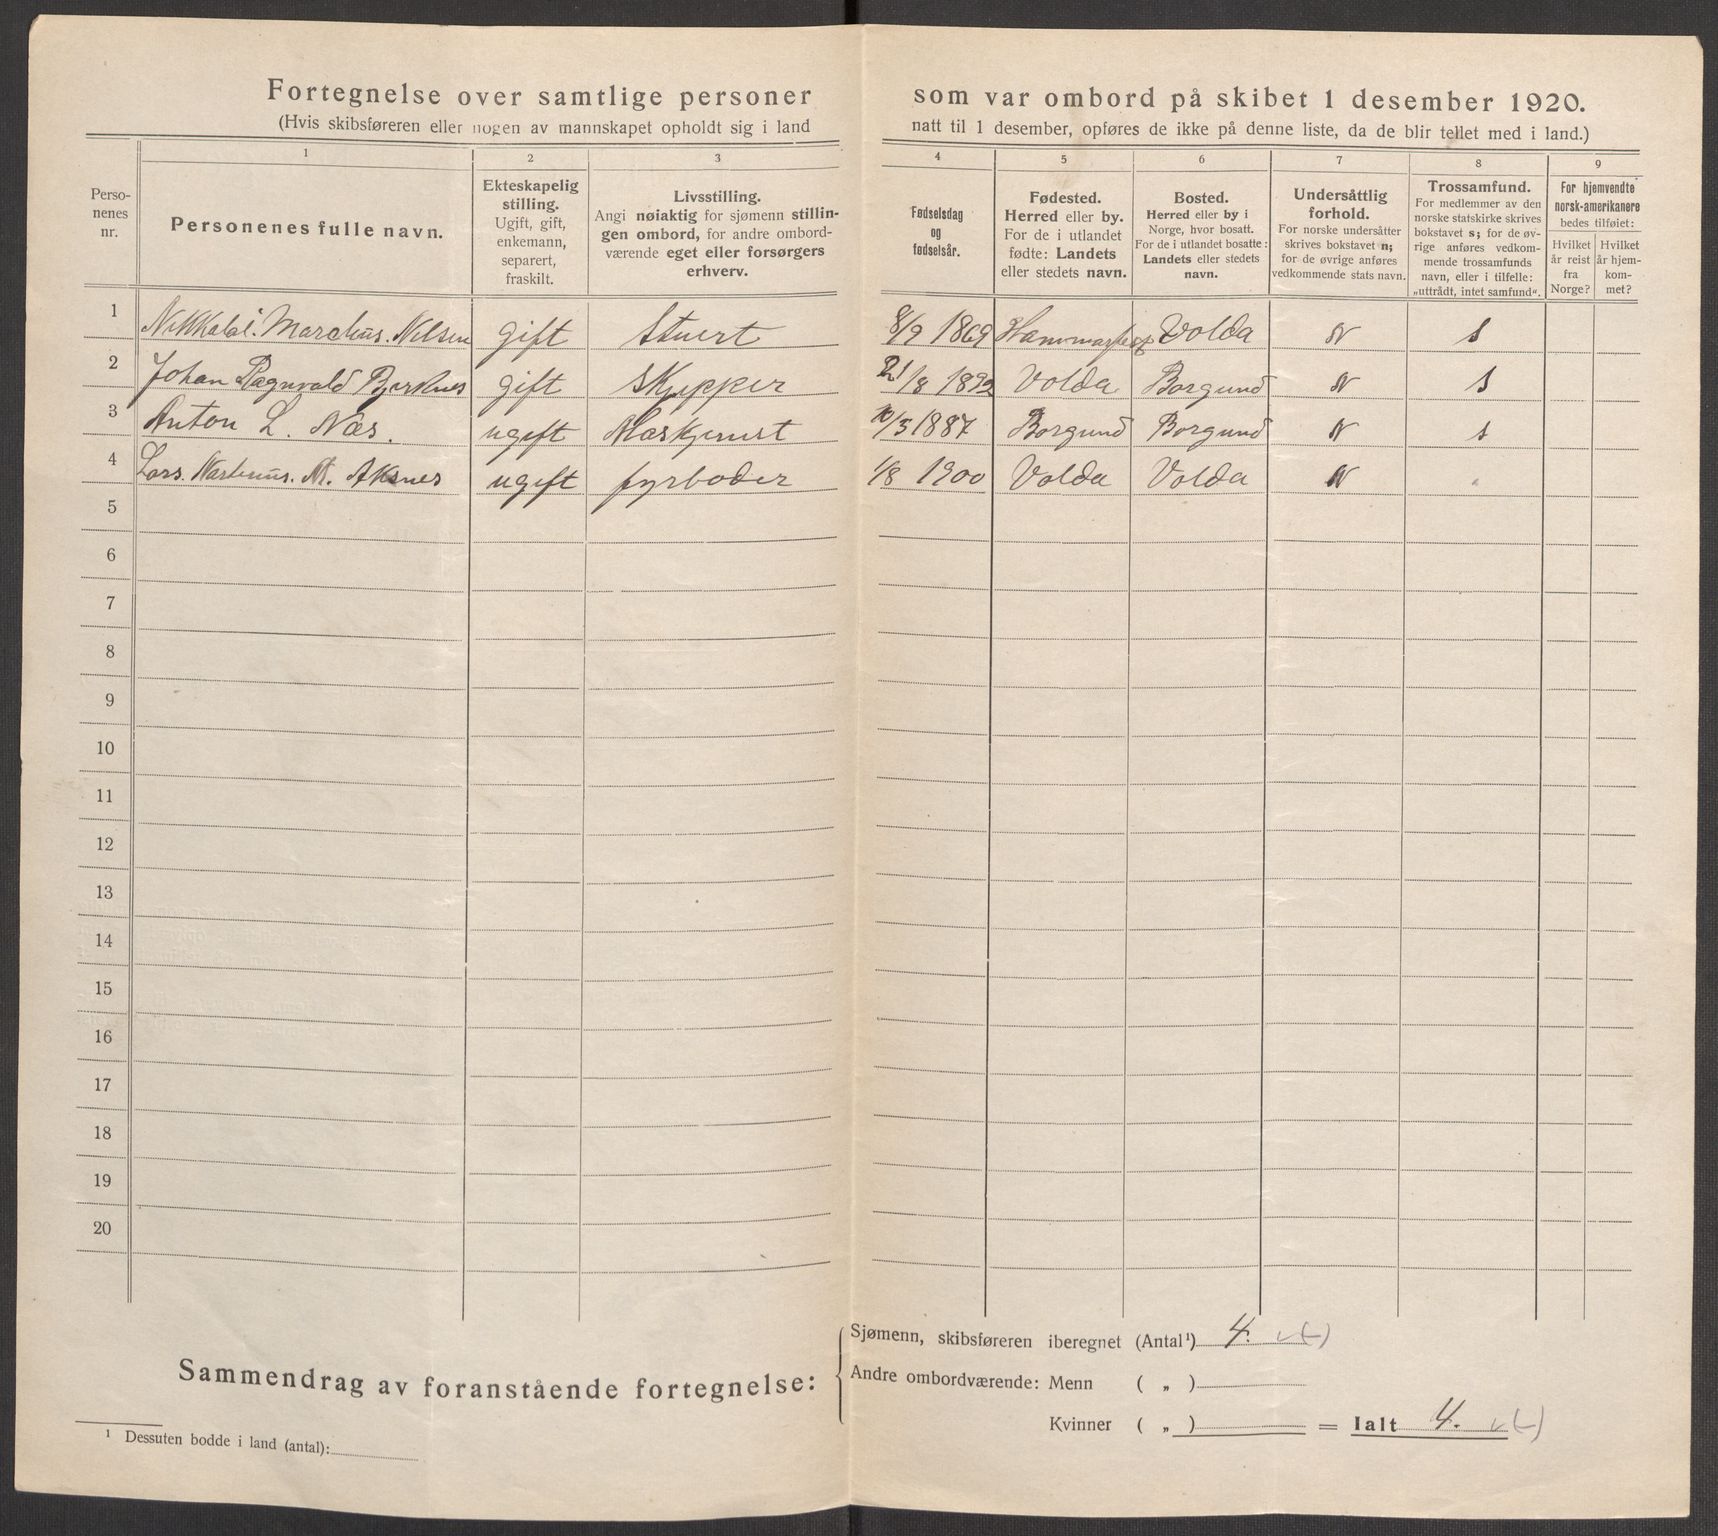 Fortegnelse over samtlige personer som var ombord på skibet 1 desember 1920.
(Hvis skibsføreren eller nogen av mannskapet opholdt sig i land natt til 1 desember, opføres de ikke på denne liste, da de blir tellet med i land.)
Perso-
nenes
nr.
1
Personenes fulle navn.
2
Ekteskapelig
stilling.
Ugift, gift,
enkemann,
separert,
fraskilt.
3
Livsstilling.
Angi nøiaktig for sjømenn stillin-
gen ombord, for andre ombord-
værende eget eller forsørgers
erhverv.
4
Fødselsdag
og
fødselsår.
5
Fødested.
Herred eller by.
For de i utlandet
fødte: Landets
eller stedets navn.
6
Bosted.
Herred eller by i
Norge, hvor bosatt.
For de i utlandet bosatte:
Landets eller stedets
navn.
7
Undersåttlig
forhold.
For norske undersåtter
skrives bokstavet n;
for de øvrige anføres
vedkommende stats navn.
8
Trossamfund.
For medlemmer av den
norske statskirke skrives
bokstavet s; for de øv-
rige anføres vedkom-
mende trossamfunds
navn, eller i tilfelle:
„uttrådt, intet samfund“.
9
For hjemvendte
norsk-amerikanere
bedes tilføiet:
Hvilket
år reist
fra
Norge?
Hvilket
år hjem-
kom-
met?
1 Marchus. Nilsen gift Stuert 8/9 1869 Volda N s
2 Johan Ragnvald Bjerknes gift Skjepper 21/8 1892 Volda Borgund N s
3 Anton L. Næs. ugift Maskjenist 10/5 1887 Borgund Borgund N s
4 Lars M. Aksnes ugift fyrbøder 1/8 1900 Volda Volda N
5
6
7
8
9
10
11
12
13
14
15
16
17
18
19
20
Sammendrag av foranstående fortegnelse:
Sjømenn, skibsføreren iberegnet (Antal¹) 4.
Andre ombordværende: Menn ( „ )
Kvinner ( „ ) = Ialt 4.
¹ Dessuten bodde i land (antal):